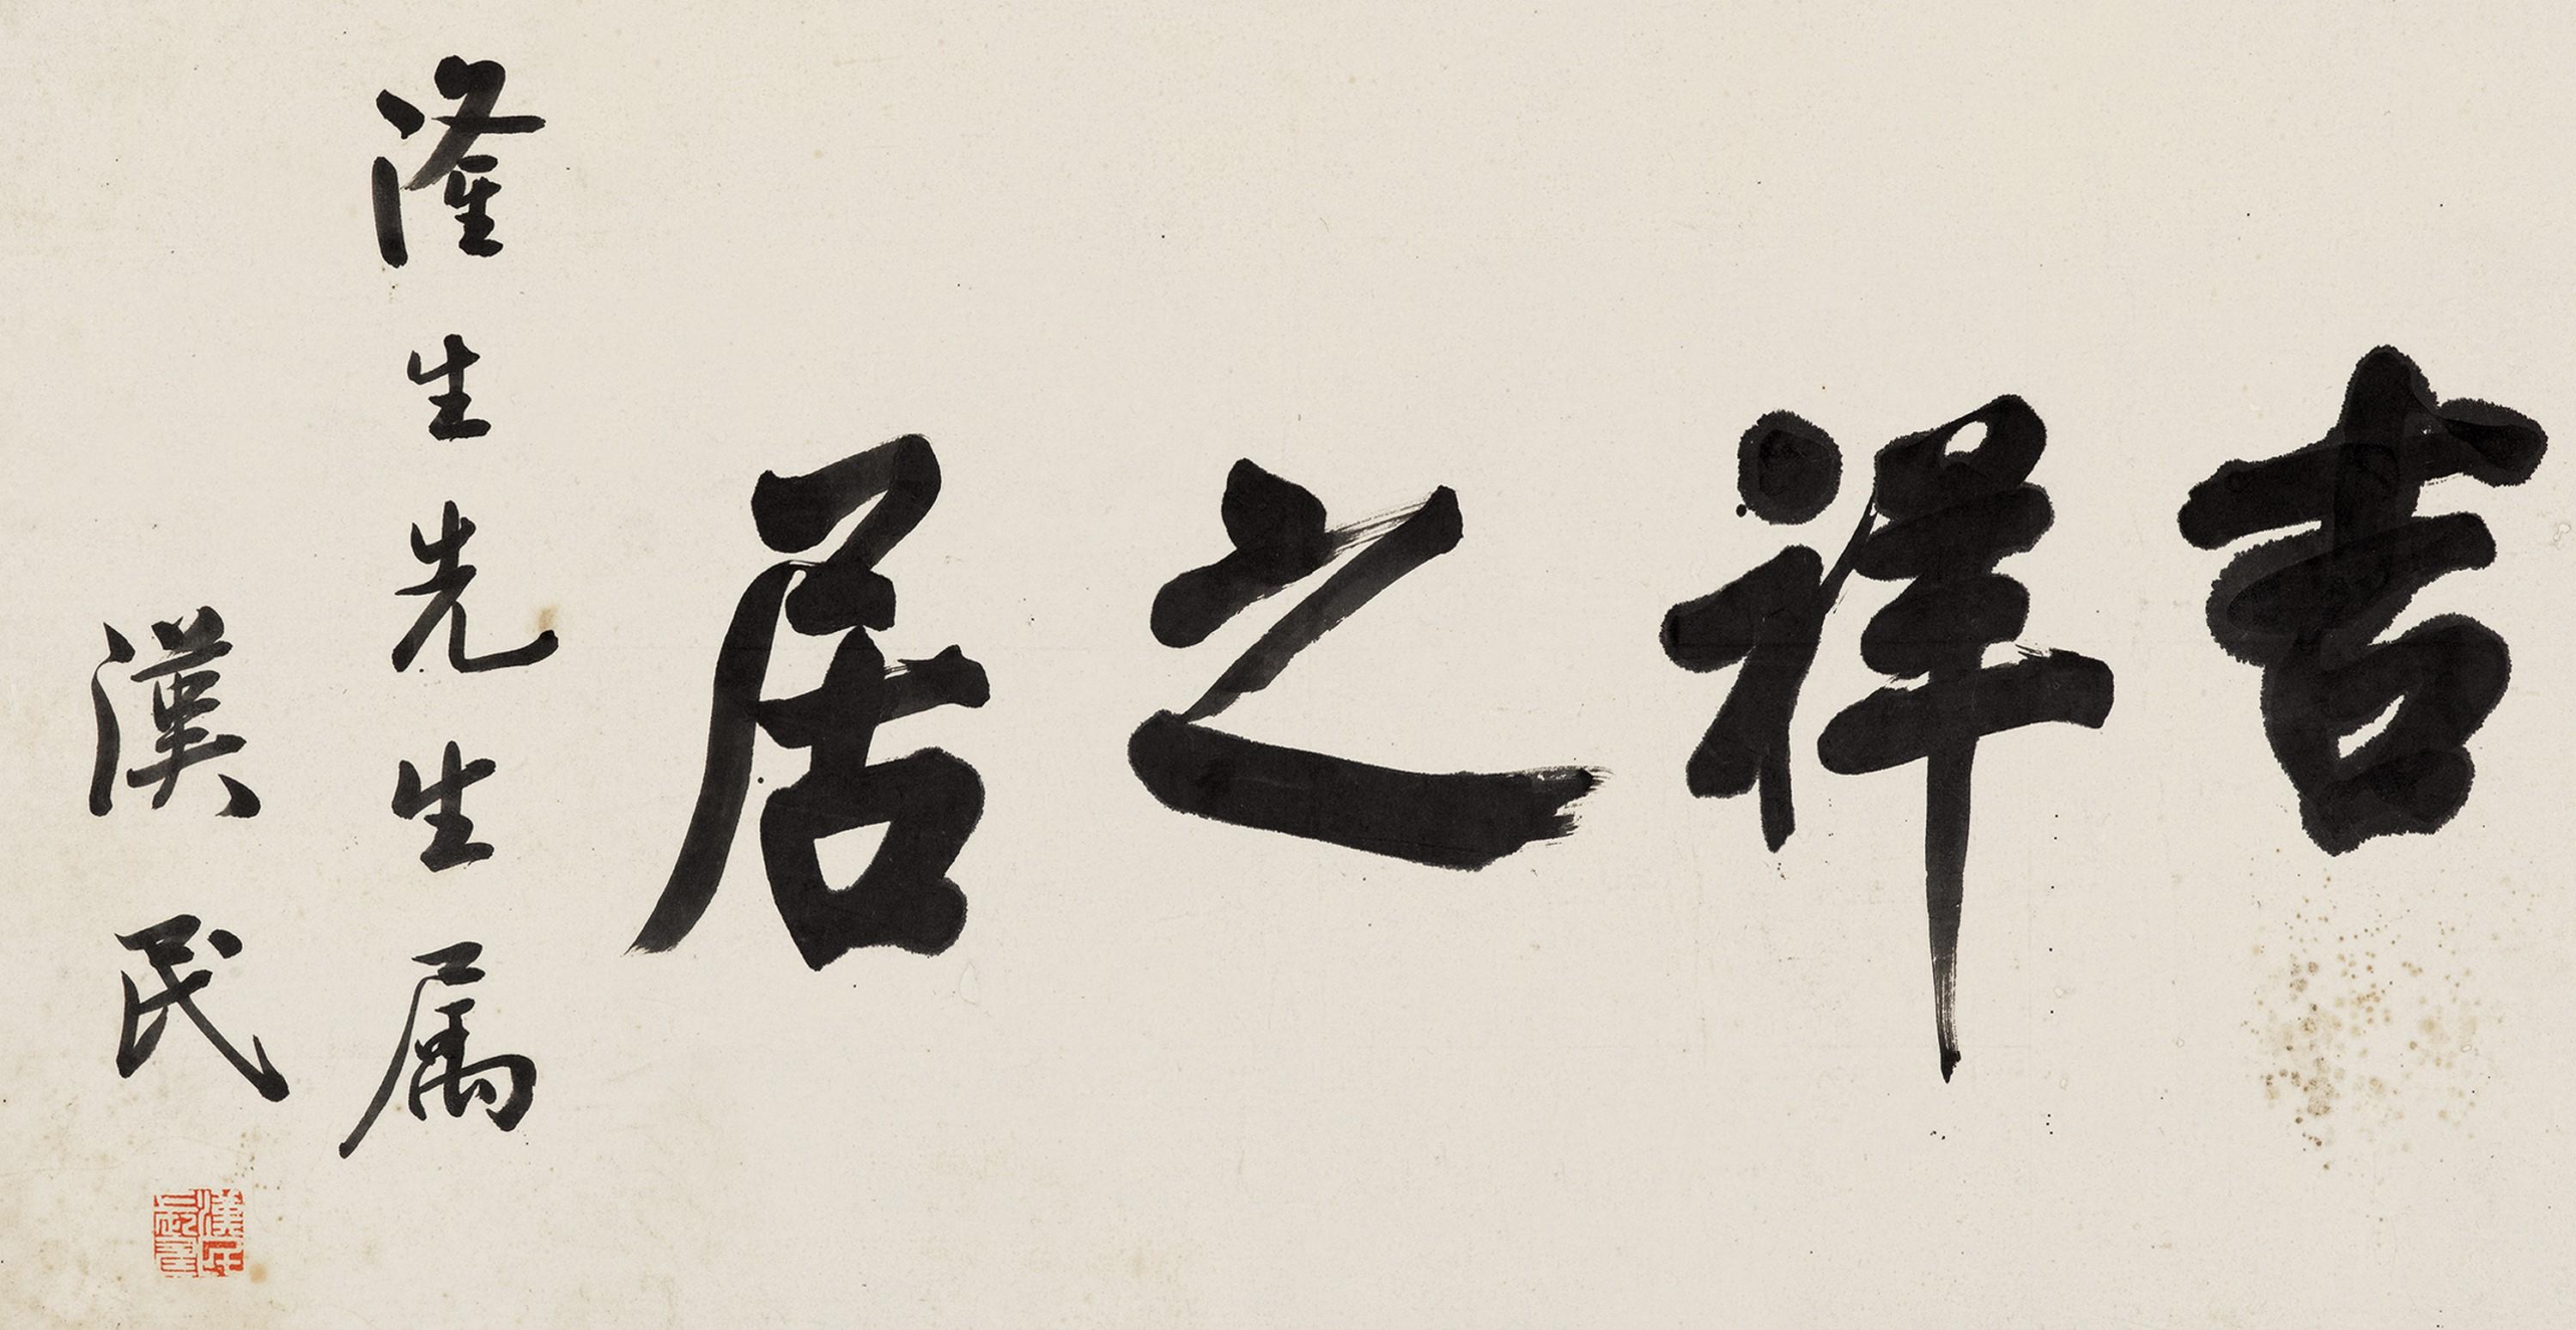 吉祥之居
隆生先生属
漢民